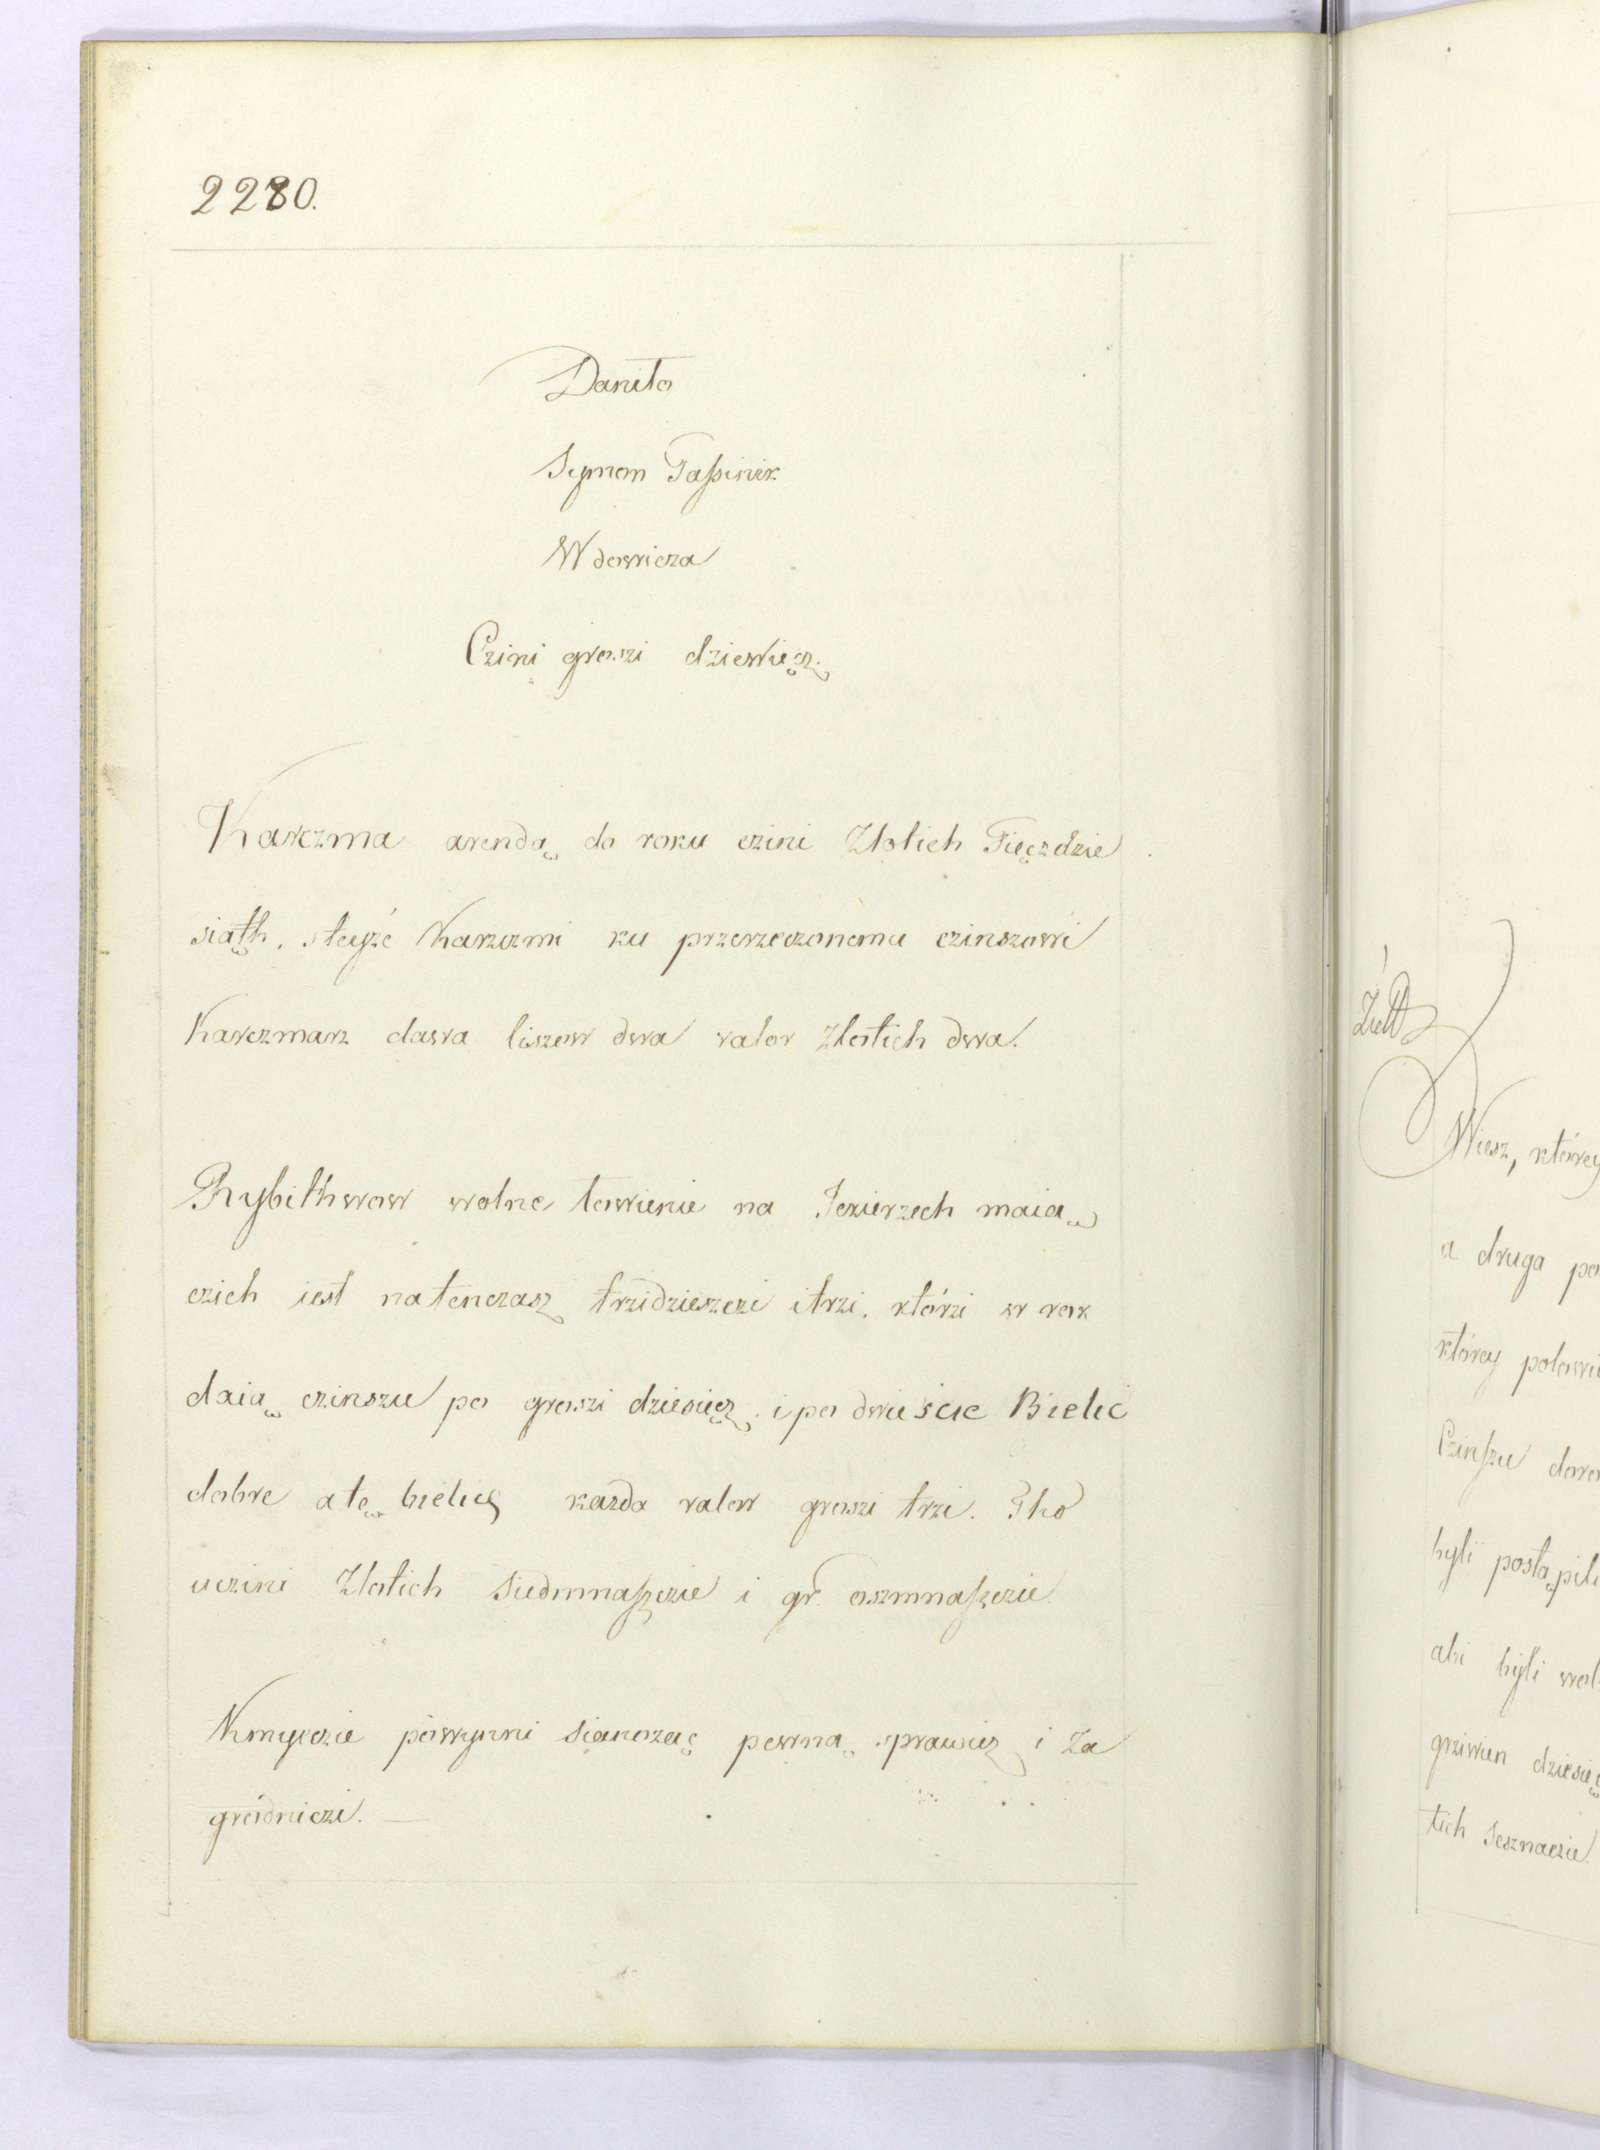 2280.
Daniło
Symon Passinik
Wdowicza
Czini groszi dziewięcz.
Karczma arendą do roku czini Złotich Pięczdzie
siąth. s teyże Karczmi ku przerzeczonemu czinszowi
Karczmarz dawa liszow dwa valor złotich dwa.
Rybithwow wolne łowienie na Jezierzech maią
czich iest natenczasz trzidzieszczi i trzi. którzi w rok
daią czinszu po groszi dziesięcz. i po dwieście Bielic
dobre a tę bielicę każda valor groszi trzi. Tho
uczini Złotich siedmnaszczie i gr. oszmnaszczie.
Kmyczie powynni sianożąć pewną sprawicz i Za
grodniczi. —
Wiesz, którey
a druga po
którey połowi
Czinszu dawa
byli postąpili
abi byli wol
griwien dziesię
tich szesznaczie.